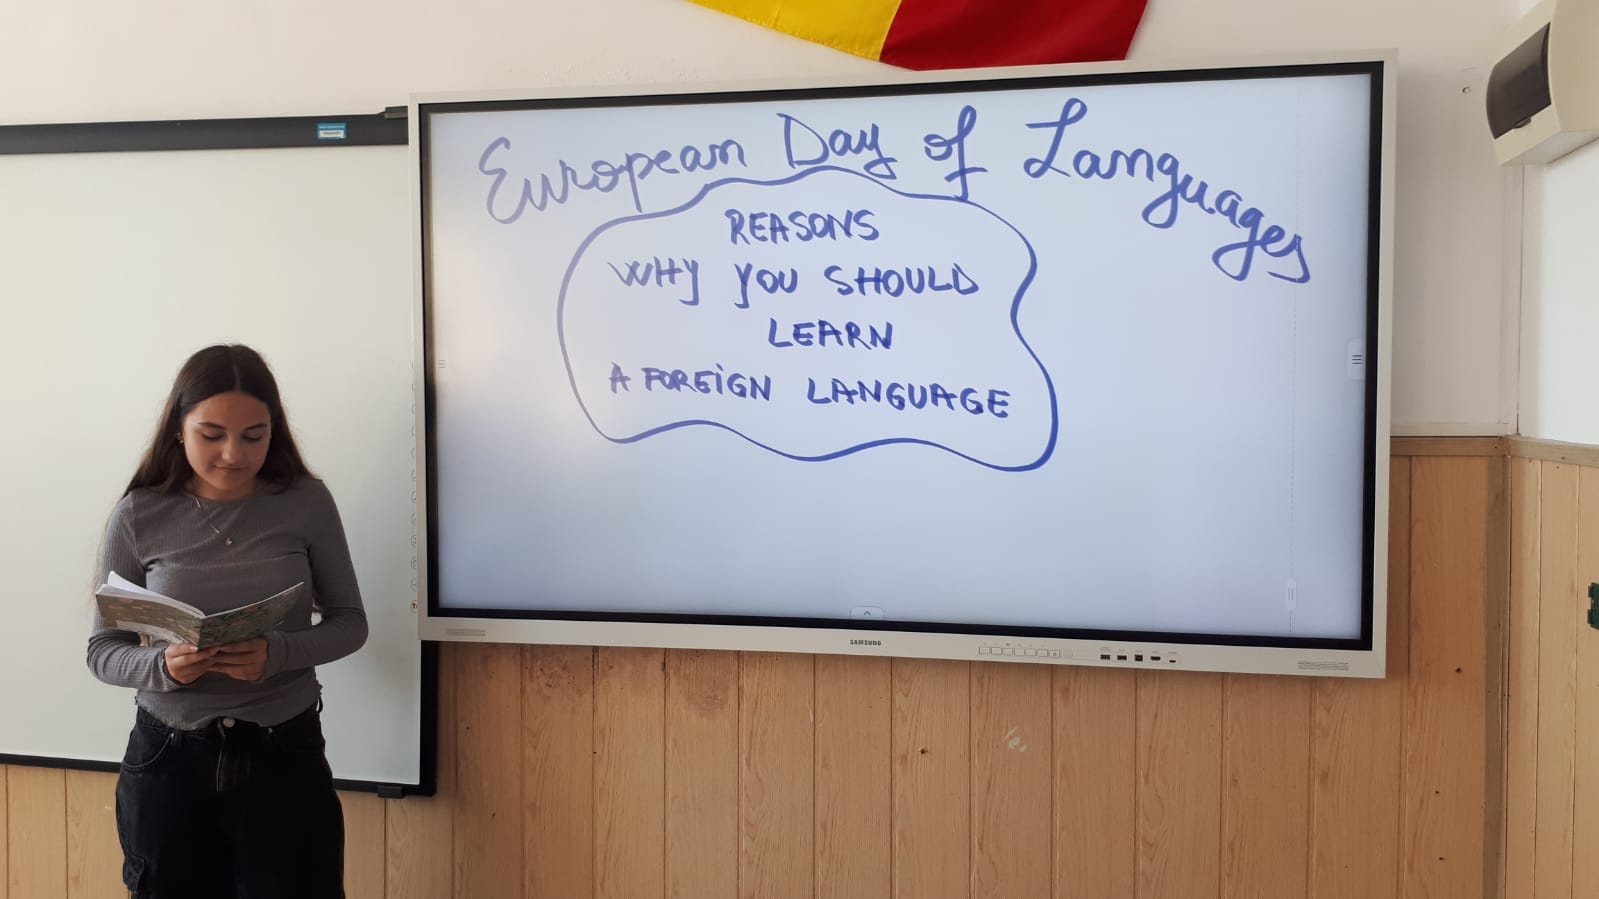 European Day of Languages
REASONS
WHY YOU SHOULD
LEARN
A FOREIGN LANGUAGE
SAMSUNG